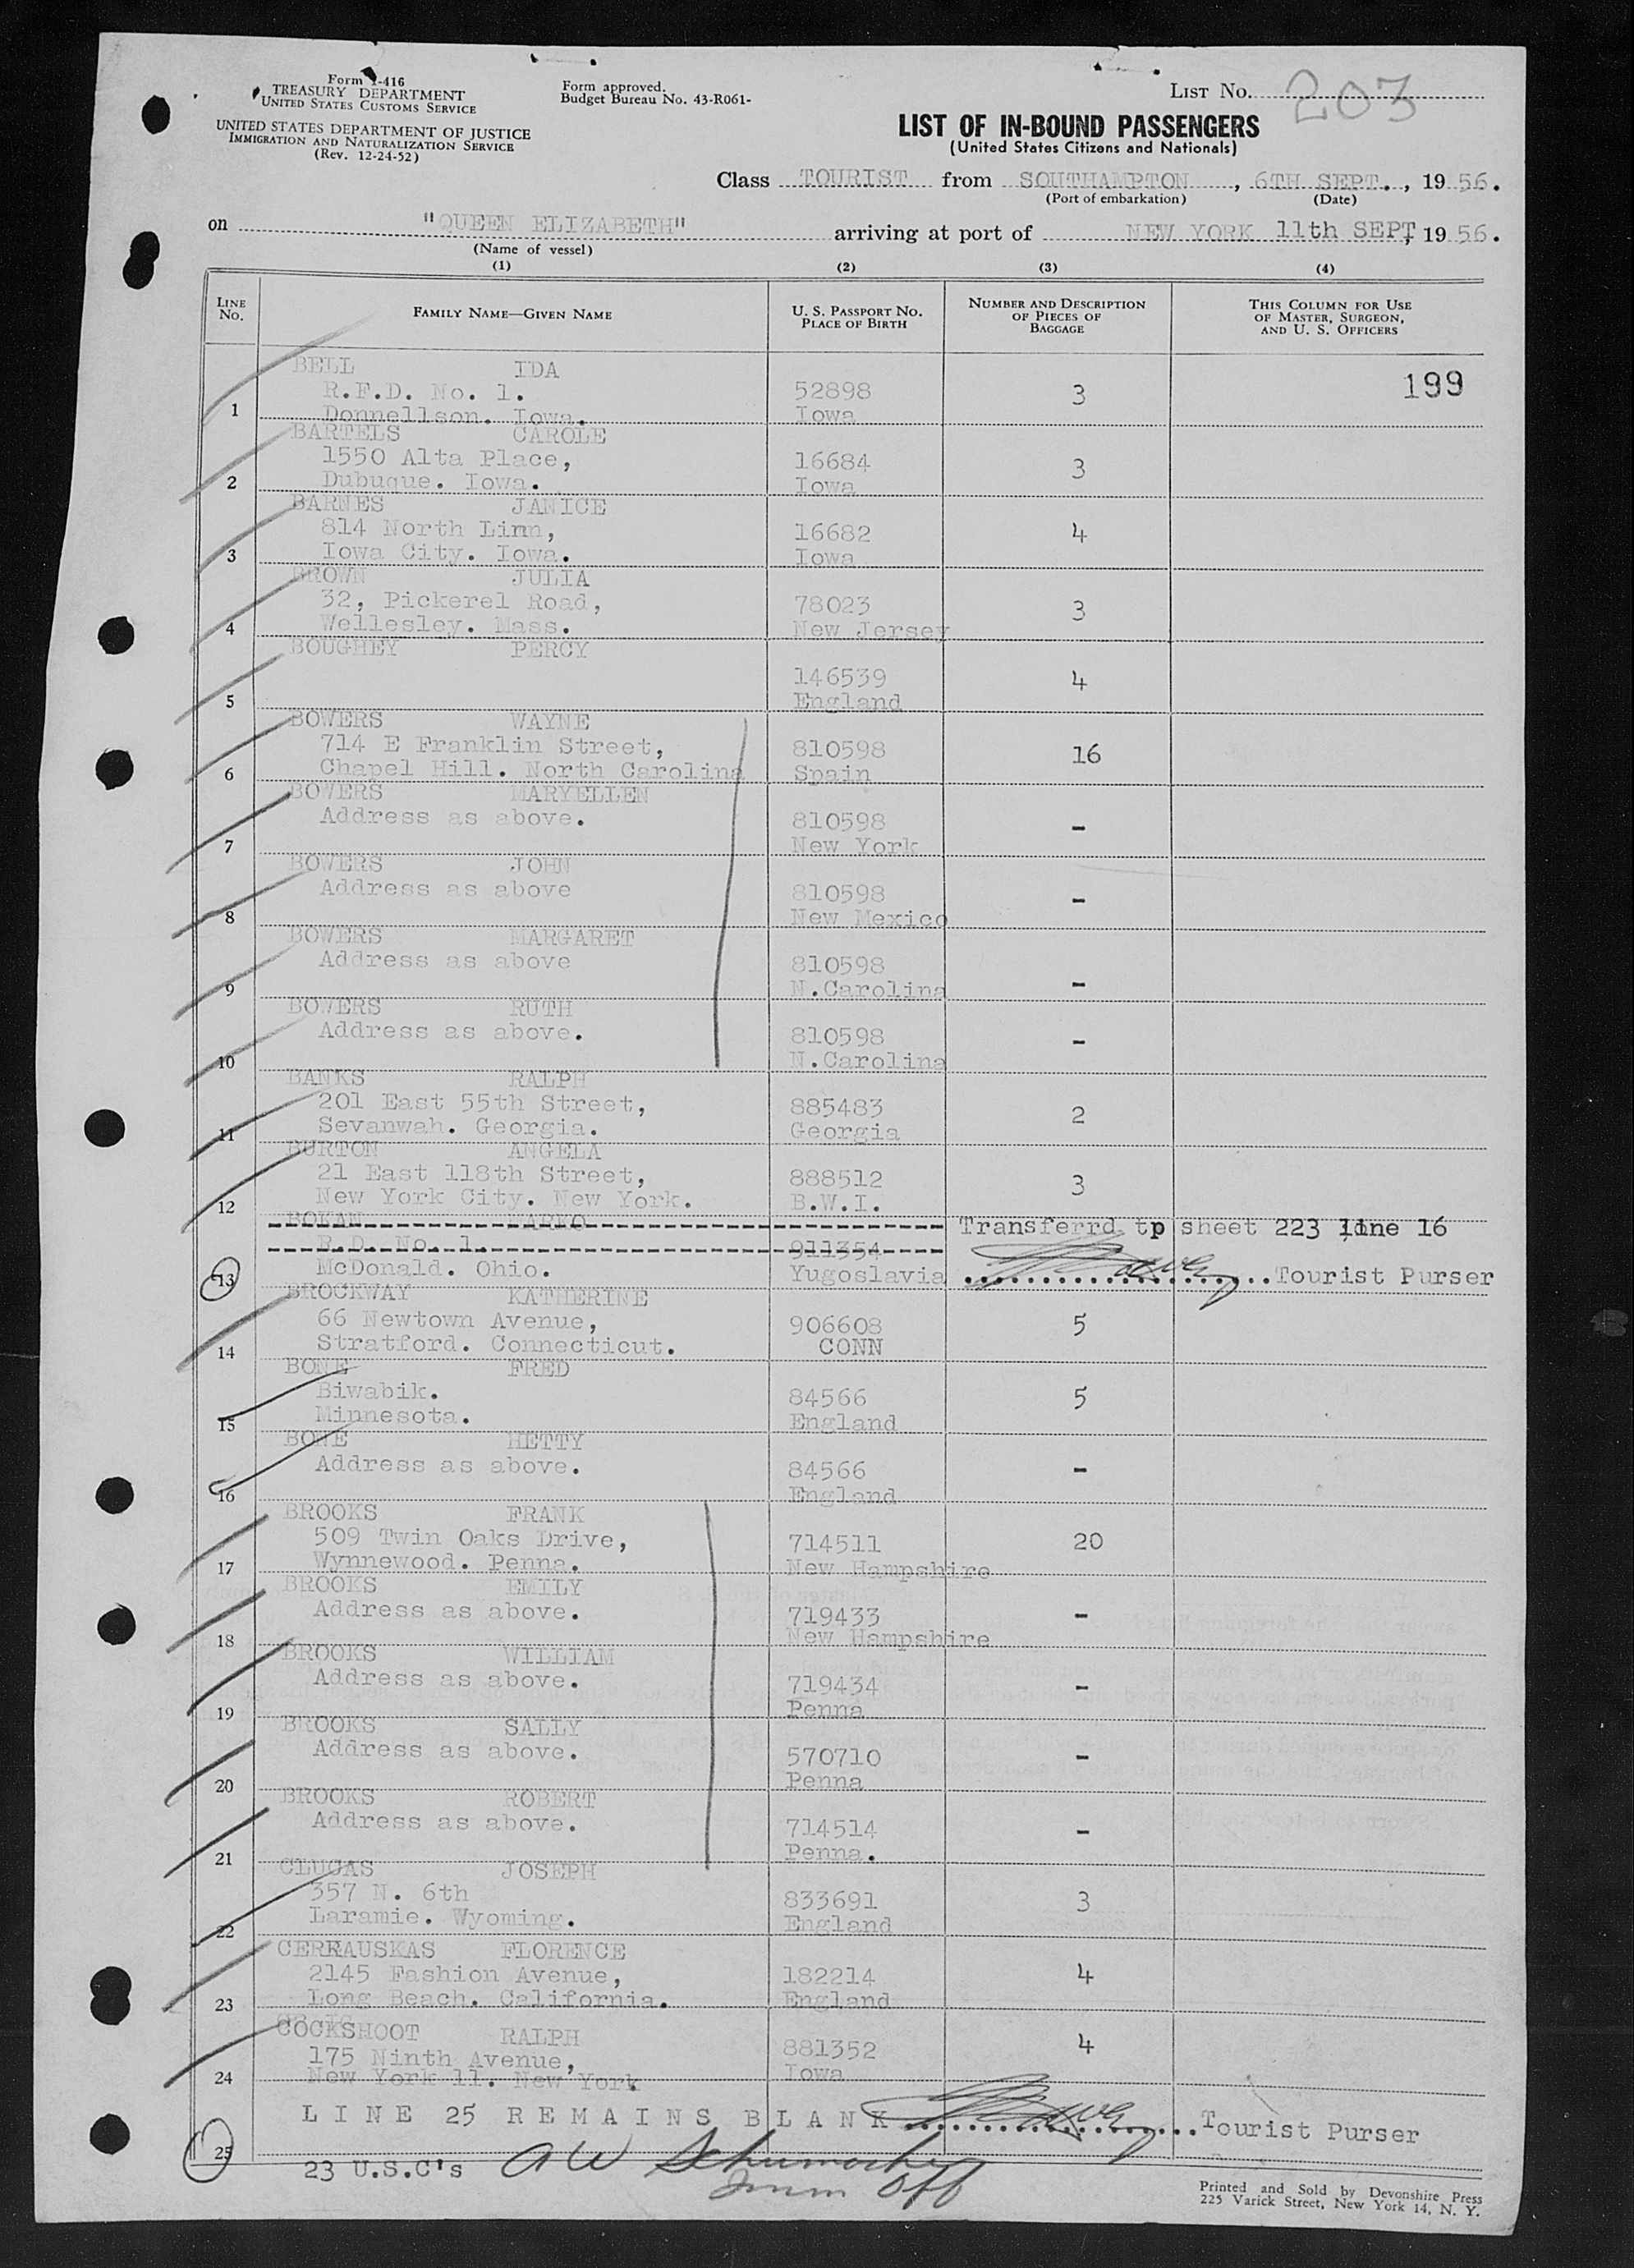 Form I-416
TREASURY DEPARTMENT
UNITED STATES CUSTOMS SERVICE
UNITED STATES DEPARTMENT OF JUSTICE
IMMIGRATION AND NATURALIZATION SERVICE
(Rev. 12-24-52)
Form approved.
Budget Bureau No. 43-R061-
LIST NO. 203
LIST OF IN-BOUND PASSENGERS
(United States Citizens and Nationals)
Class TOURIST from SOUTHAMPTON, 6TH SEPT., 1956.
(Port of embarkation) (Date)
on "QUEEN ELIZABETH" arriving at port of NEW YORK 11th SEPT, 1956.
(Name of vessel)
(1) (2) (3) (4)
LINE NO. FAMILY NAME—GIVEN NAME U. S. PASSPORT NO. PLACE OF BIRTH NUMBER AND DESCRIPTION OF PIECES OF BAGGAGE THIS COLUMN FOR USE OF MASTER, SURGEON, AND U. S. OFFICERS
BELL IDA
R.F.D. No. 1. 52898 3 199
1 Donnellson. Iowa. Iowa
BARTELS CAROLE
1550 Alta Place, 16684 3
2 Dubuque. Iowa. Iowa
BARNES JANICE
814 North Linn, 16682 4
3 Iowa City. Iowa. Iowa
BROWN JULIA
32, Pickerel Road, 78023 3
4 Wellesley. Mass. New Jersey
BOUGHEY PERCY
146539 4
5 England
BOWERS WAYNE
714 E Franklin Street, 810598 16
6 Chapel Hill. North Carolina Spain
BOWERS MARYELLEN
Address as above. 810598 -
7 New York
BOWERS JOHN
Address as above 810598 -
8 New Mexico
BOWERS MARGARET
Address as above 810598 -
9 N.Carolina
BOWERS RUTH
Address as above. 810598 -
10 N.Carolina
BANKS RALPH
201 East 55th Street, 885483 2
11 Sevanwah. Georgia. Georgia
BURTON ANGELA
21 East 118th Street, 888512 3
12 New York City. New York. B.W.I.
BOKAN MARKO Transferrd tp sheet 223 line 16
R.D. No. 1. 911354
13 McDonald. Ohio. Yugoslavia Tourist Purser
BROCKWAY KATHERINE
66 Newtown Avenue, 906608 5
14 Stratford. Connecticut. CONN
BONE FRED
Biwabik. 84566 5
15 Minnesota. England
BONE HETTY
Address as above. 84566 -
16 England
BROOKS FRANK
509 Twin Oaks Drive, 714511 20
17 Wynnewood. Penna. New Hampshire
BROOKS EMILY
Address as above. 719433 -
18 New Hampshire
BROOKS WILLIAM
Address as above. 719434 -
19 Penna
BROOKS SALLY
Address as above. 570710 -
20 Penna
BROOKS ROBERT
Address as above. 714514 -
21 Penna.
CLUCAS JOSEPH
357 N. 6th 833691 3
22 Laramie. Wyoming. England
CERRAUSKAS FLORENCE
2145 Fashion Avenue, 182214 4
23 Long Beach. California. England
COCKSHOOT RALPH
175 Ninth Avenue, 881352 4
24 New York 11. New York Iowa
LINE 25 REMAINS BLANK Tourist Purser
25
23 U.S.C's A W Schumacher
Imm Off
Printed and Sold by Devonshire Press
225 Varick Street, New York 14, N. Y.